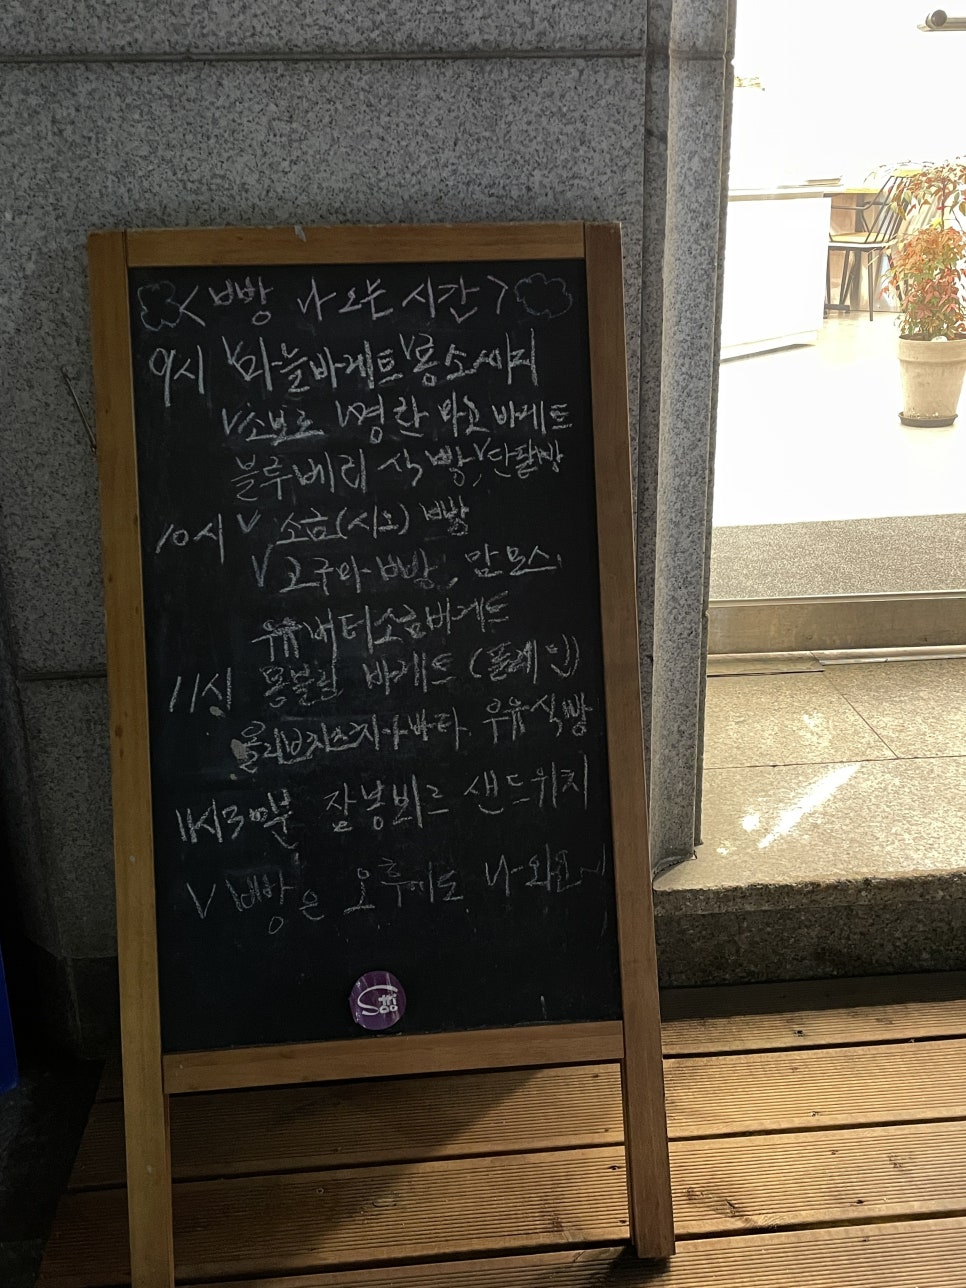 < 빵 나오는 시간 >
9시 V마늘바게트 V롱소세지
V소보로 V명란 마요 바게트
블루베리 식빵, V단팥빵
10시 V 소금(시오) 빵
V 고구마빵, 맘모스.
우유버터소금바게트
11시 몽블랑 바게트 (플레인)
올리브치즈치아바타. 우유식빵
11시30분 잠봉뵈르 샌드위치
V 빵은 오후에도 나와요